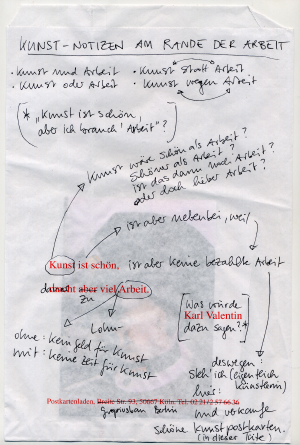 KUNST-NOTIZEN AM RANDE DER ARBEIT
• Kunst und Arbeit • Kunst statt Arbeit
• Kunst oder Arbeit • Kunst wegen Arbeit
(* „Kunst ist schön,
aber ich brauch' Arbeit"?)
Kunst wäre schön als Arbeit?
Schöner als Arbeit?
ist das dann noch Arbeit?
oder doch lieber Arbeit?
ist aber nebenbei, weil
Kunst ist schön, ist aber keine bezahlte Arbeit
macht aber viel Arbeit.
zu
Lohn-
[Was würde
Karl Valentin
dazu sagen?*]
ohne: kein geld für Kunst
mit: keine Zeit für Kunst
deswegen
steh ich (eigentlich
künstlerin)
hier
und verkaufe
schöne kunstpostkarten.
(in dieser Tüte)
Postkartenladen, Breite Str. 93, 50667 Köln. Tel. 02 21/2 57 66 36
Gropiusbau Berlin